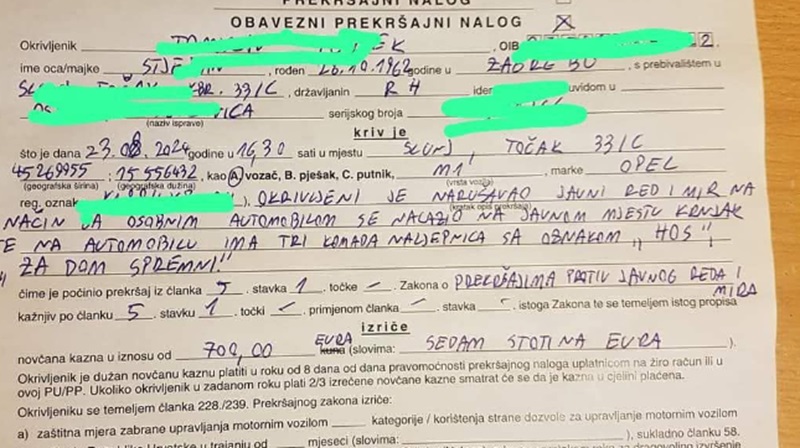 PREKRŠAJNI NALOG
OBAVEZNI PREKRŠAJNI NALOG
Okrivljenik , OIB 2
ime oca/majke , rođen 26.10.1962 godine u ZAGREBU , s prebivalištem u
BR. 331C , državljanin RH iden uvidom u
serijskog broja
(naziv isprave)
kriv je
što je dana 23.08.2024 godine u 16,30 sati u mjestu SLUNJ, TOČAK 331C
45269955 : 15556432 , kao A. vozač, B. pješak, C. putnik, M1 , marke OPEL
(geografska širina) (geografska dužina) (vrsta vozila)
reg. oznak ). OKRIVLJENI JE NARUŠAVAO JAVNI RED I MIR NA
(kratak opis prekršaja)
NAČIN DA OSOBNIM AUTOMOBILOM SE NALAZIO NA JAVNOM MJESTU KRNJAK
TE NA AUTOMOBILU IMA TRI KOMADA NALJEPNICA SA OZNAKOM „HOS"
„ZA DOM SPREMNI!"
čime je počinio prekršaj iz članka 5 . stavka 1 . točke – . Zakona o PREKRŠAJIMA PROTIV JAVNOG REDA I
MIRA
kažnjiv po članku 5 . stavku 1 . točki – . primjenom članka – . stavka – . istoga Zakona te se temeljem istog propisa
izriče
EURA
novčana kazna u iznosu od 700,00 kuna (slovima: SEDAM STOTINA EURA ).
Okrivljenik je dužan novčanu kaznu platiti u roku od 8 dana od dana pravomoćnosti prekršajnog naloga uplatnicom na žiro račun ili u
ovoj PU/PP. Ukoliko okrivljenik u zadanom roku plati 2/3 izrečene novčane kazne smatrat će se da je kazna u cjelini plaćena.
Okrivljeniku se temeljem članka 228./239. Prekršajnog zakona izriče:
a) zaštitna mjera zabrane upravljanja motornim vozilom kategorije / korištenja strane dozvole za upravljanje motornim vozilom
u trajanju od mjeseci (slovima: ), sukladno članku 58.